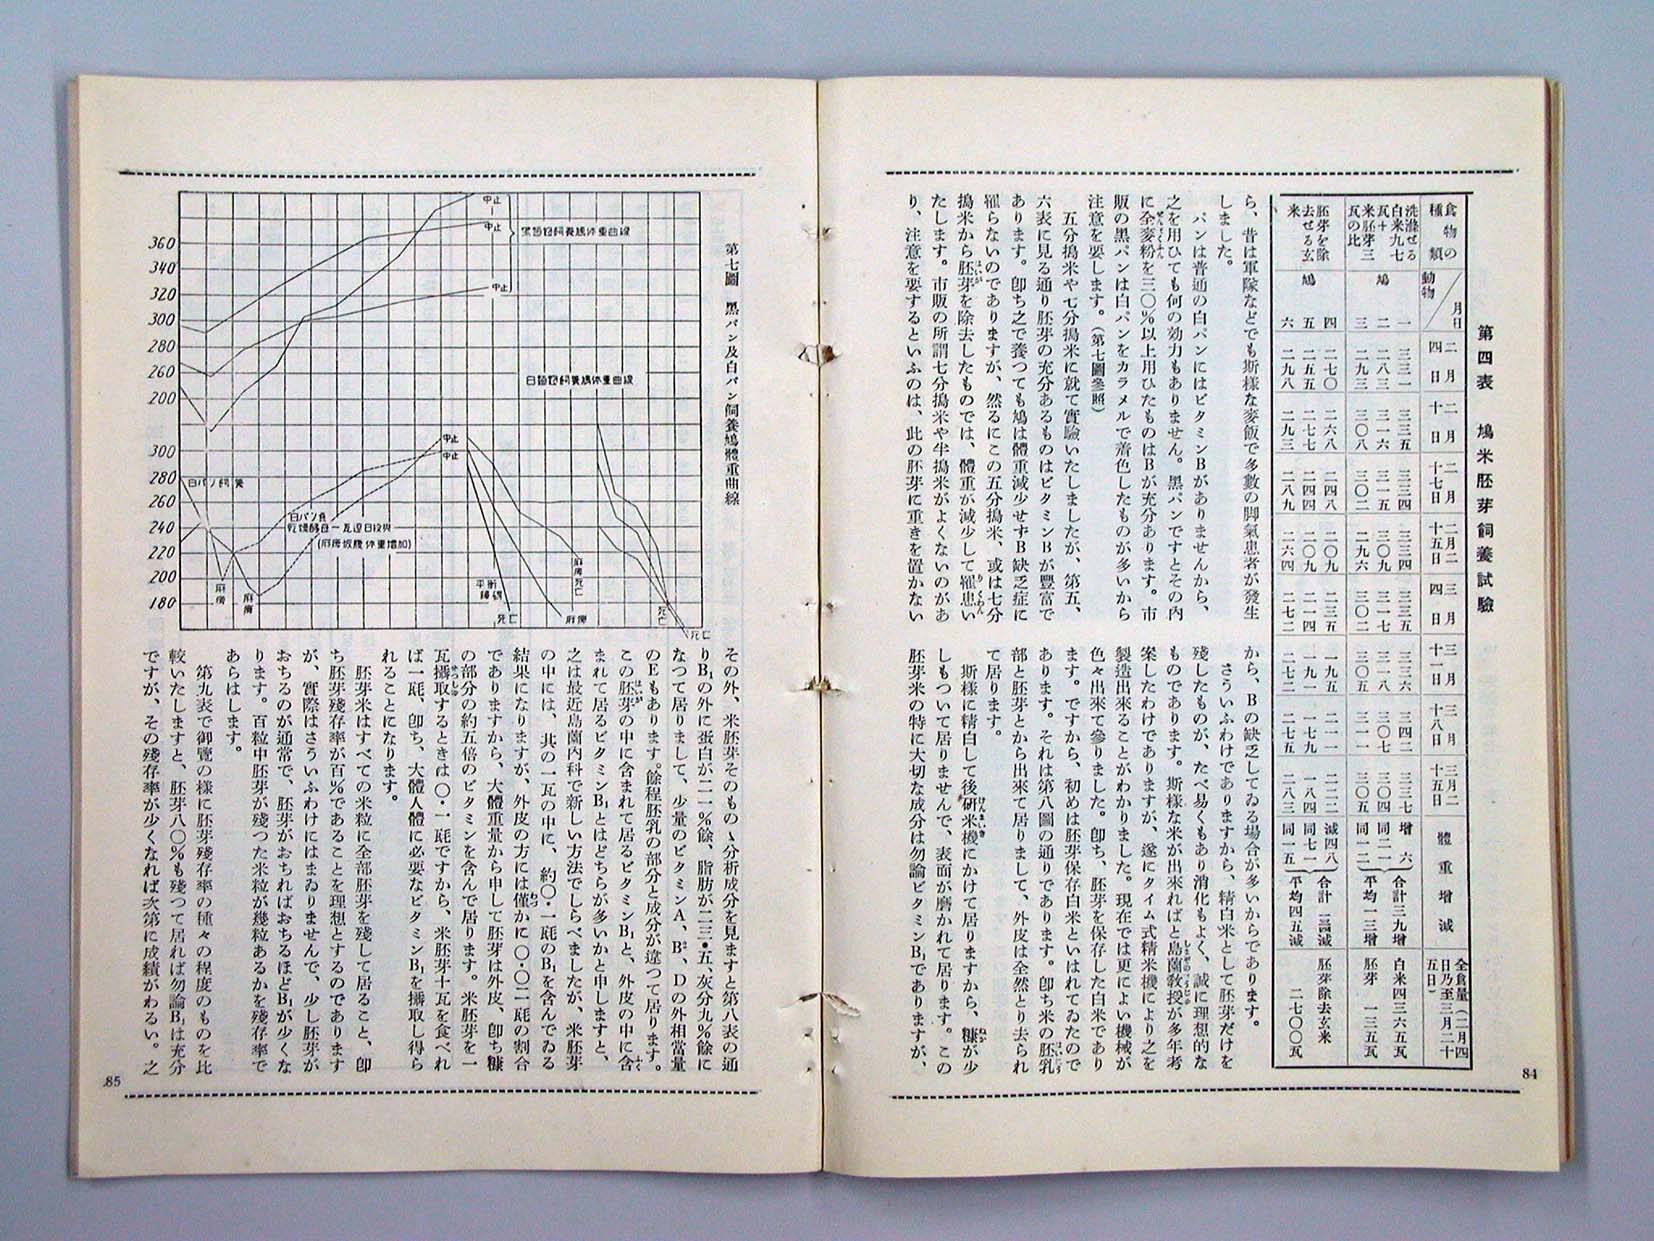 第四表　鳩米胚芽飼養試驗
食物の種類
動物
月日
二月四日
二月十日
二月十七日
二月二十五日
三月四日
三月十一日
三月十八日
三月二十五日
體重增減
全食量(二月四日乃至三月二十五日)
洗滌せる白米九七瓦+米胚芽三瓦の比
鳩
一　三三一　三三五　三三四　三三四　三三五　三三六　三四二　三三七　增　六
二　二八三　三一六　三一五　三〇九　三一七　三一八　三〇七　三〇四　同二一
三　二九三　三〇八　三〇二　二九六　三〇二　三〇五　三一一　三〇五　同一二
合計三九增
平均一三增
白米四三六五瓦
胚芽　一三五瓦
胚芽を除去せる玄米
鳩
四　二七〇　二六八　二四八　二〇九　二三五　一九五　二一一　二二二　減四八
五　二五五　二七七　二四四　二〇九　二一四　一九一　一七九　一八四　同七一
六　二九八　二九三　二八九　二六四　二七二　二七二　二七五　二八三　同一五
合計　一三四減
平均四五減
胚芽除去玄米
二七〇〇瓦
ら、昔は軍隊などでも斯樣な麥飯で多數の脚氣患者が發生
しました。
パンは普通の白パンにはビタミンBがありませんから、
之を用ひても何の効力もありません。黑パンですとその內
に全麥粉を三〇%以上用ひたものはBが充分あります。市
販の黑パンは白パンをカラメルで着色したものが多いから
注意を要します。(第七圖參照)
五分搗米や七分搗米に就て實驗いたしましたが、第五、
六表に見る通り胚芽の充分あるものはビタミンBが豐富で
あります。卽ち之で養つても鳩は體重減少せずB缺乏症に
罹らないのでありますが、然るにこの五分搗米、或は七分
搗米から胚芽を除去したものでは、體重が減少して罹患い
たします。市販の所謂七分搗米や半搗米がよくないのがあ
り、注意を要するといふのは、此の胚芽に重きを置かない
から、Bの缺乏してゐる場合が多いからであります。
さういふわけでありますから、精白米として胚芽だけを
殘したものが、たべ易くもあり消化もよく、誠に理想的な
ものであります。斯樣な米が出來ればと島薗敎授が多年考
案したわけでありますが、遂にタイム式精米機により之を
製造出來ることがわかりました。現在では更によい機械が
色々出來て參りました。卽ち、胚芽を保存した白米であり
ます。ですから、初めは胚芽保存白米といはれてゐたので
あります。それは第八圖の通りであります。卽ち米の胚乳
部と胚芽とから出來て居りまして、外皮は全然とり去られ
て居ります。
斯樣に精白して後硏米機にかけて居りますから、糠が少
しもついて居りませんで、表面が磨かれて居ります。この
胚芽米の特に大切な成分は勿論ビタミンB₁でありますが、
84
第七圖　黑パン及白パン飼養鳩體重曲線
360
340
320
300
280
260
200
300
280
260
240
220
200
180
中止
中止
中止
黑麵麭飼養鳩体重曲線
白麵麭飼養鳩体重曲線
中止
中止
白パン飼養
白パン食
乾燥酵母一瓦逐日投與
(麻痺恢復体重增加)
麻痺
麻痺
平衡障碍
死亡
麻痺
麻痺死亡
死亡
死亡
その外、米胚芽そのものゝ分析成分を見ますと第八表の通
りB₁の外に蛋白が二一%餘、脂肪が二三・五、灰分九%餘に
なつて居りまして、少量のビタミンA、B₂、Dの外相當量
のEもあります。餘程胚乳の部分と成分が違つて居ります。
この胚芽の中に含まれて居るビタミンB₁と、外皮の中に含
まれて居るビタミンB₁とはどちらが多いかと申しますと、
之は最近島薗內科で新しい方法でしらべましたが、米胚芽
の中には、其の一瓦の中に、約〇・一瓱のB₁を含んでゐる
結果になりますが、外皮の方には僅かに〇・〇二瓱の割合
でありますから、大體重量から申して胚芽は外皮、卽ち糠
の部分の約五倍のビタミンを含んで居ります。米胚芽を一
瓦攝取するときは〇・一瓱ですから、米胚芽十瓦を食べれ
ば一瓱、卽ち、大體人體に必要なビタミンB₁を攝取し得ら
れることになります。
胚芽米はすべての米粒に全部胚芽を殘して居ること、卽
ち胚芽殘存率が百%であることを理想とするのであります
が、實際はさういふわけにはまゐりませんで、少し胚芽が
おちるのが通常で、胚芽がおちればおちるほどB₁が少くな
ります。百粒中胚芽が殘つた米粒が幾粒あるかを殘存率で
あらはします。
第九表で御覽の樣に胚芽殘存率の種々の程度のものを比
較いたしますと、胚芽八〇%も殘つて居れば勿論B₁は充分
ですが、その殘存率が少くなれば次第に成績がわるい。之
85